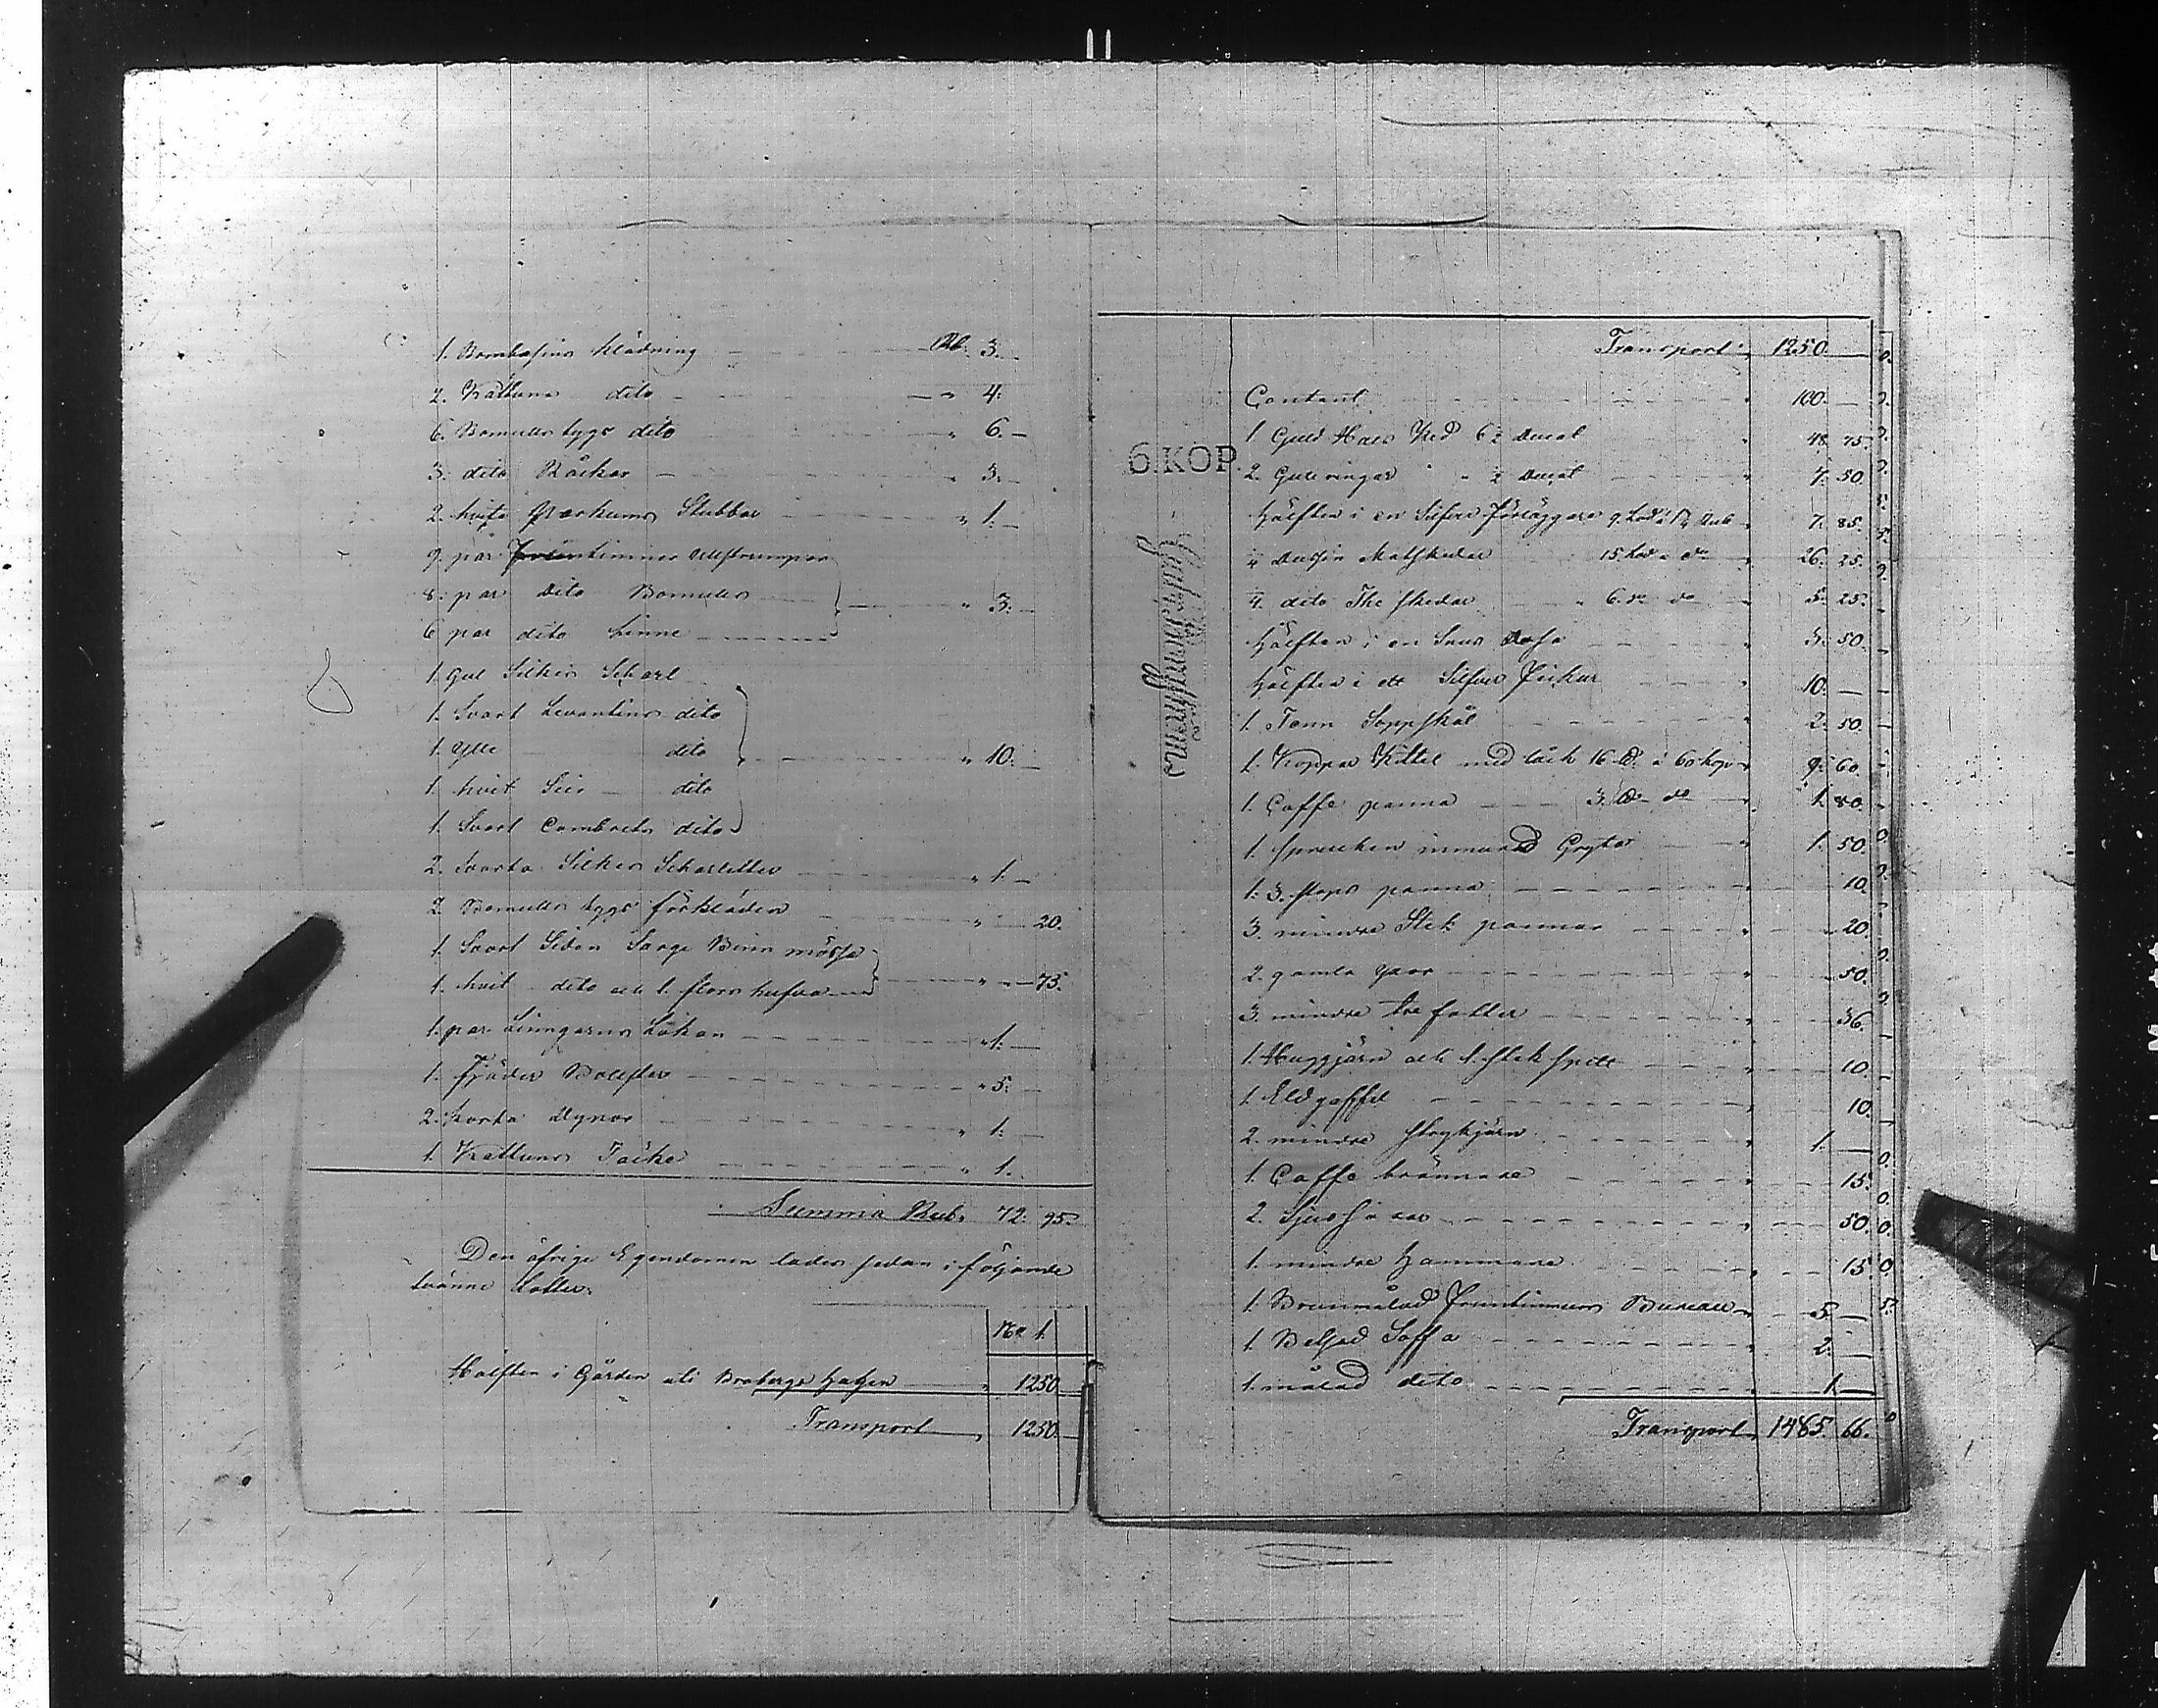 1. Bombasins klädning Rub. 3. —
2. Kattuns dito " 4.
6. Bomulls tygs dito " 6. —
3. dito Råckar " 3. —
2. hvita Parkums Stubbar " 1. —
9. par Fruntimmer Ullstrumpor
8. par Dito Bomulls " 3. —
6 par dito Linne
1. Gul Silkes Scharl
1. Svart Levantins dito
1. Ylle dito " 10. —
1. hvit dito
1. Svart Cambrics dito
2. Svarta Silkes Scharletter " 1. —
2. Bomulls tygs förkläden " — 20.
1. Svart Siden Sarge Binn mössa
1. hvit dito och 1. flors hufva " — 75.
1. par Linngarns Lakan " 1. —
1. Fjäder Bolster " 5. —
2. korta Dynor " 1. —
1. Kattuns Täcke " 1.
Summa Rub. 72. 95.
Den öfrige Egendomen lades sedan i följande
tvänne Lotter.
No 1.
Hälften i Gården uti Brobergs hagen " 1250 —
Transport " 1250. —
6.KOP.
Transport " 1250. —
Contant " 100. —
1 Guld Hals Ked 6½ Ducat " 48. 75.
2. Gullringar " ½ Ducat " 7. 50.
Hälften i en Silfver förläggare 9. Lod " 7. 85.
Dussin Matskedar 15. Lod a do " 26. 25.
4. dito The skedar " 6. do do " 5. 25.
Hälften i en Snus Dosa " 3. 50.
Hälften i ett Silfver " 10. —
1. Tenn Soppskål " 2. 50.
1. Koppar Kittel med låck 16 ℔ a 60 kop " 9. 60.
1. Caffe panna 3. ℔ do " 1. 80.
1. sprucken inmurad Gryta " 1. 50.
1. 3. stops panna — 10.
3. mindre Stek pannor " — 20.
2. gamla " — 50.
3. mindre fötter " 36.
1. Huggjärn och 1. stekspett " 10.
1. Eldgaffel " 10.
2. mindre strykjärn " 1. —
1. Caffe brännare " 15.
2. Ljus saxar " 50.
1. mindre Hammare " 15.
1. Brunmålad Fruntimmers Bureau " 5. —
1. Betsad Soffa 2. —
1. målad dito 1. —
Transport " 1485. 66.